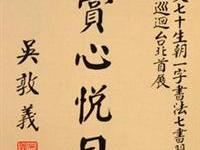 七十生朝一字書法七書習
巡迴台北首展
賞心悅目
吳敦義